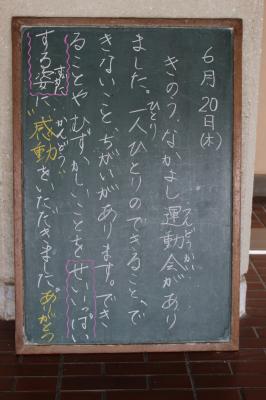 6月20日(木)
きのう、なかよし運動会があり
ました。一人ひとりのできること、で
きないこと、ちがいがあります。でき
ることやむずかしいことをせいいっぱい
する姿に、“感動”をいただきました。ありがとう
うんどうかい
ひとり
すがた
かんどう